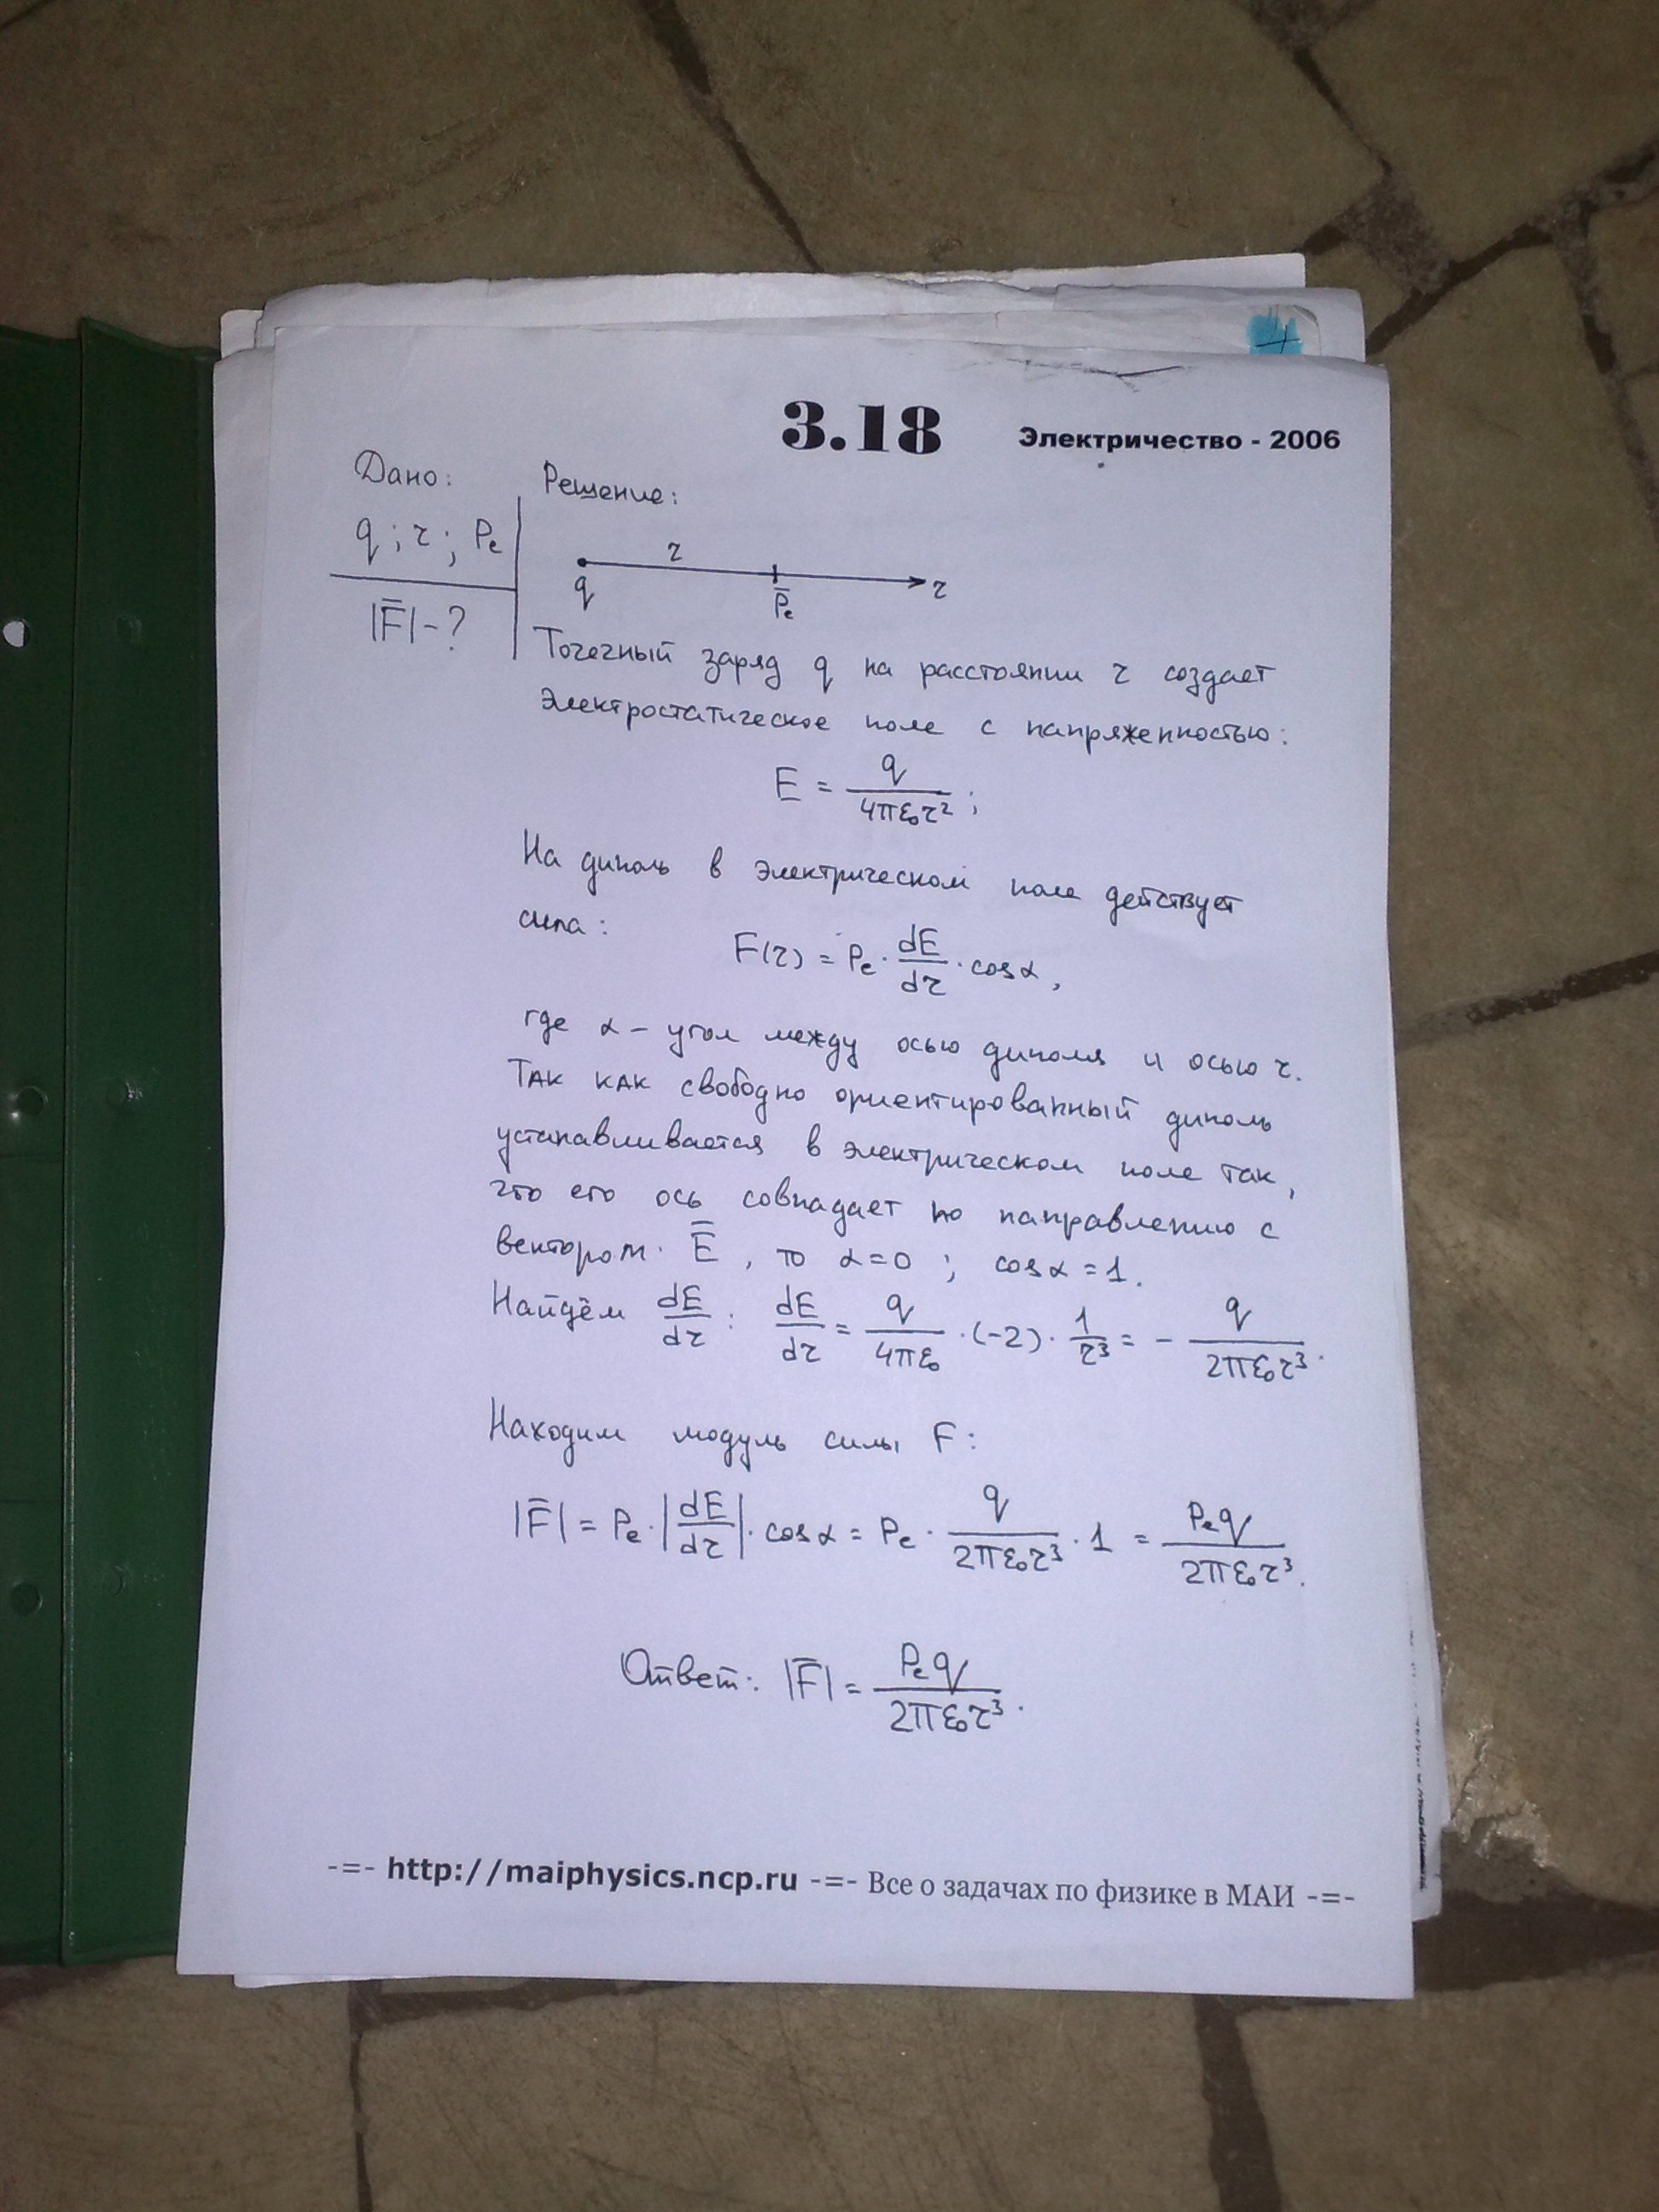 3.18
Электричество - 2006
Дано:
q ; r ; Pe
|F̅| - ?
Решение:
r
q
P̅e
r
Точечный заряд q на расстоянии r создает
электростатическое поле с напряженностью:
E = q / 4πε₀r² ;
На диполь в электрическом поле действует
сила:
F(r) = Pe · dE/dr · cosα ,
где α – угол между осью диполя и осью r.
Так как свободно ориентированный диполь
устанавливается в электрическом поле так,
что его ось совпадает по направлению с
вектором E̅ , то α = 0 ; cosα = 1.
Найдём dE/dr : dE/dr = q/4πε₀ · (-2) · 1/r³ = - q/2πε₀r³ .
Находим модуль силы F:
|F̅| = Pe · |dE/dr| · cosα = Pe · q/2πε₀r³ · 1 = Pe q/2πε₀r³ .
Ответ: |F̅| = Pe q/2πε₀r³ .
-=- http://maiphysics.ncp.ru -=- Все о задачах по физике в МАИ -=-